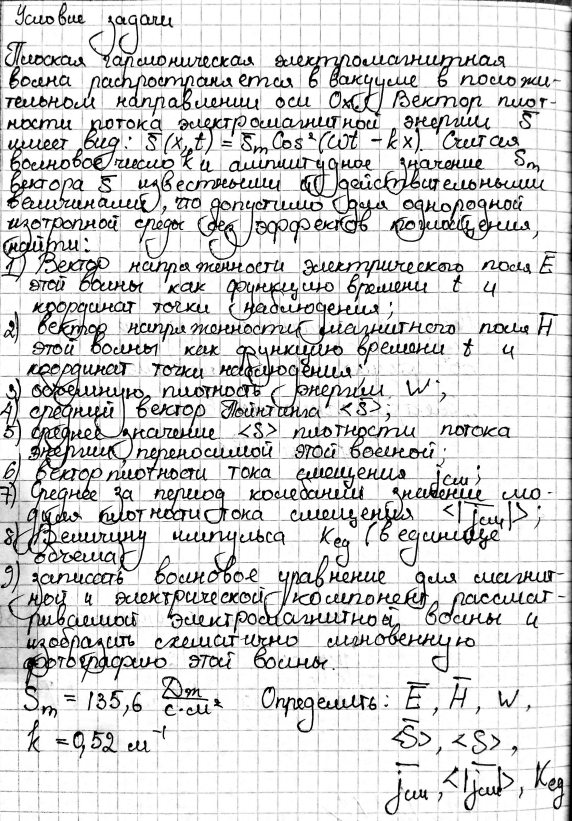 Условие задачи
Плоская гармоническая электромагнитная
волна распространяется в вакууме в положи-
тельном направлении оси Ox. Вектор плот-
ности потока электромагнитной энергии S̄
имеет вид: S̄(x,t) = S̄m Cos²(ωt - kx). Считая
волновое число k и амплитудное значение Sm
вектора S̄ известными и действительными
величинами, что допустимо для однородной
изотропной среды без эффектов поглощения,
найти:
1) Вектор напряженности электрического поля Ē
этой волны как функцию времени t и
координат точки наблюдения;
2) вектор напряженности магнитного поля H̄
этой волны как функцию времени t и
координат точки наблюдения;
3) объемную плотность энергии w;
4) средний вектор Пойнтинга <S̄>;
5) среднее значение <S> плотности потока
энергии, переносимой этой волной;
6) вектор плотности тока смещения j̄см;
7) Среднее за период колебаний значение мо-
дуля плотности тока смещения <|j̄см|>;
8) Величину импульса Kед (в единице
объема)
9) записать волновое уравнение для магнит-
ной и электрической компонент рассмат-
риваемой электромагнитной волны и
изобразить схематично мгновенную
фотографию этой волны.
Sm = 135,6 Дж/с·м² Определить: Ē, H̄, w,
k = 0,52 м⁻¹ <S̄>, <S>,
j̄см, <|j̄см|>, Kед